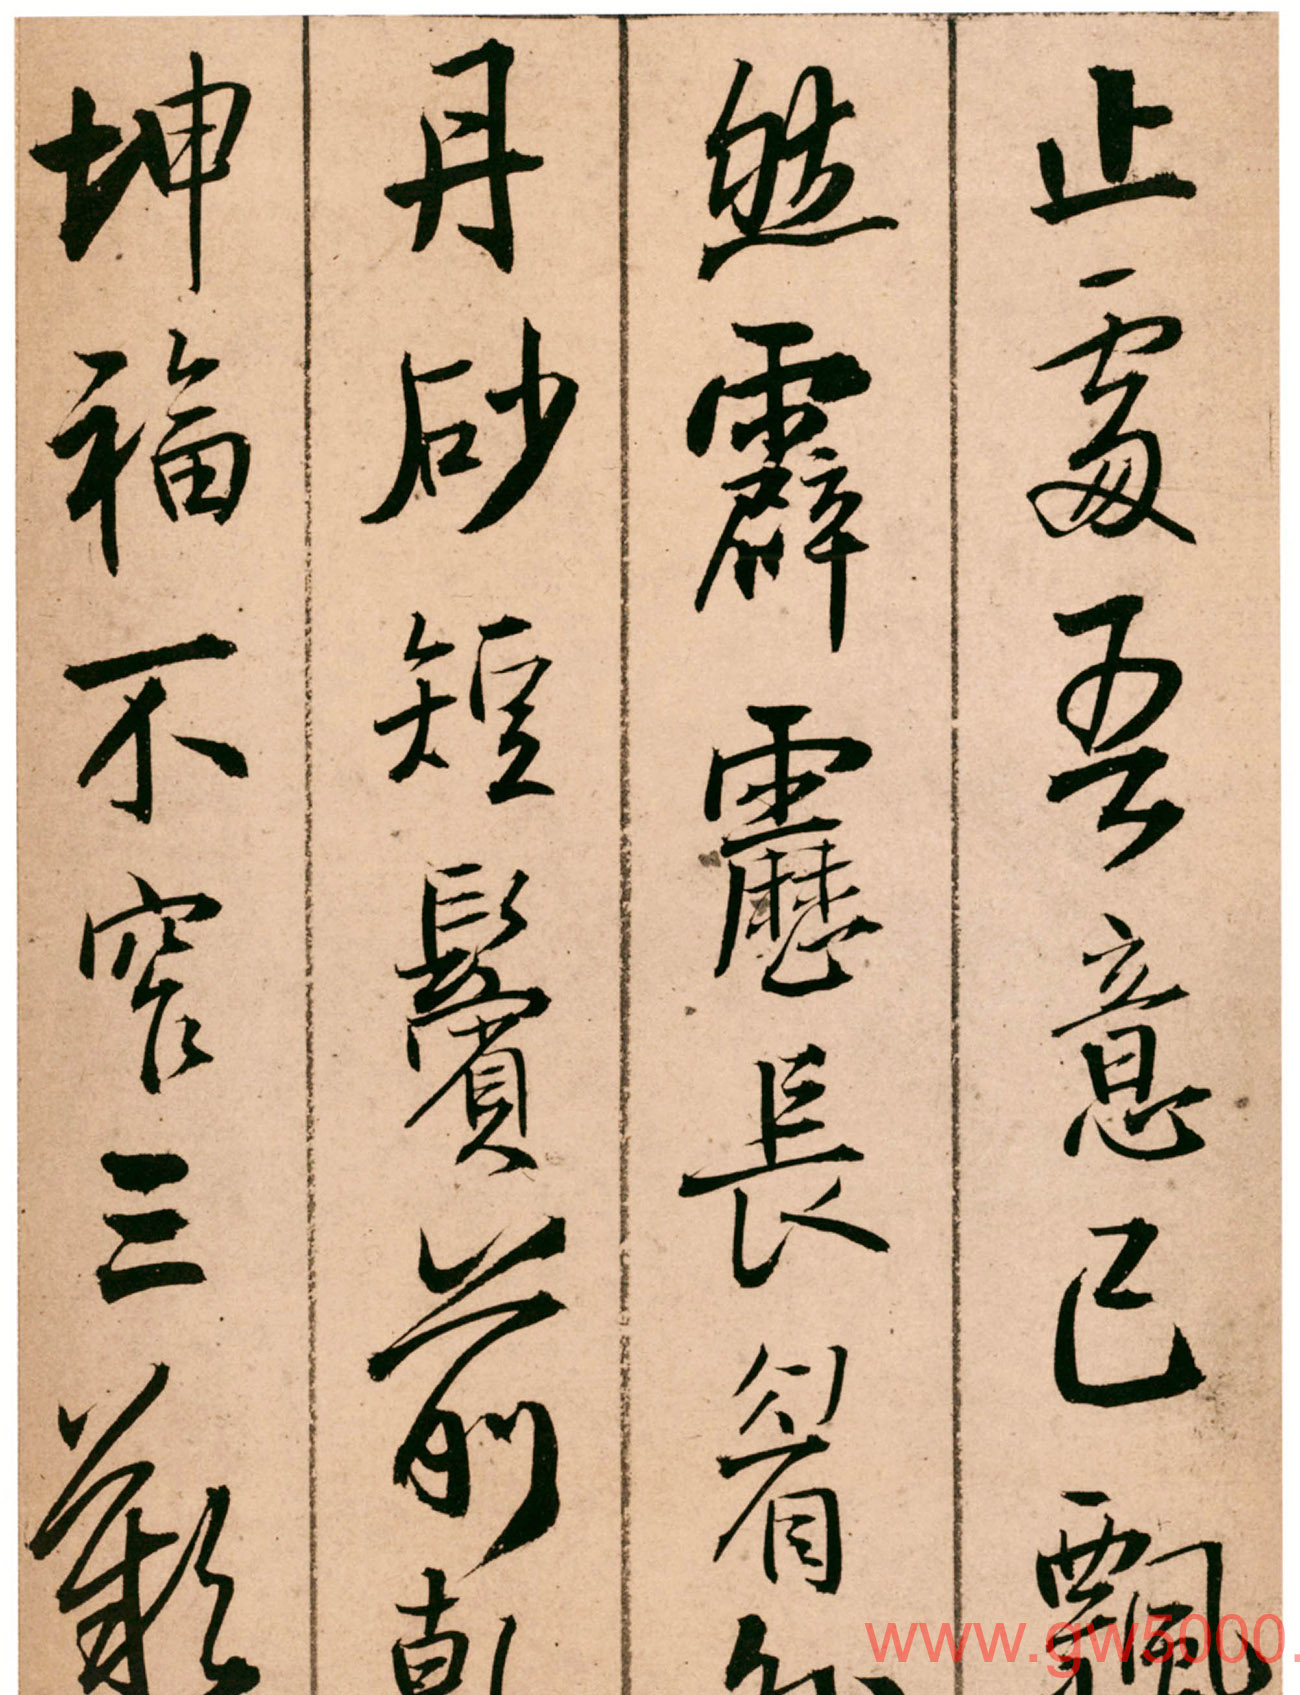 止處吾意已飄
然霹靂長眉外
丹砂短鬢前乾
坤福不窄三歎
www.gw5000.